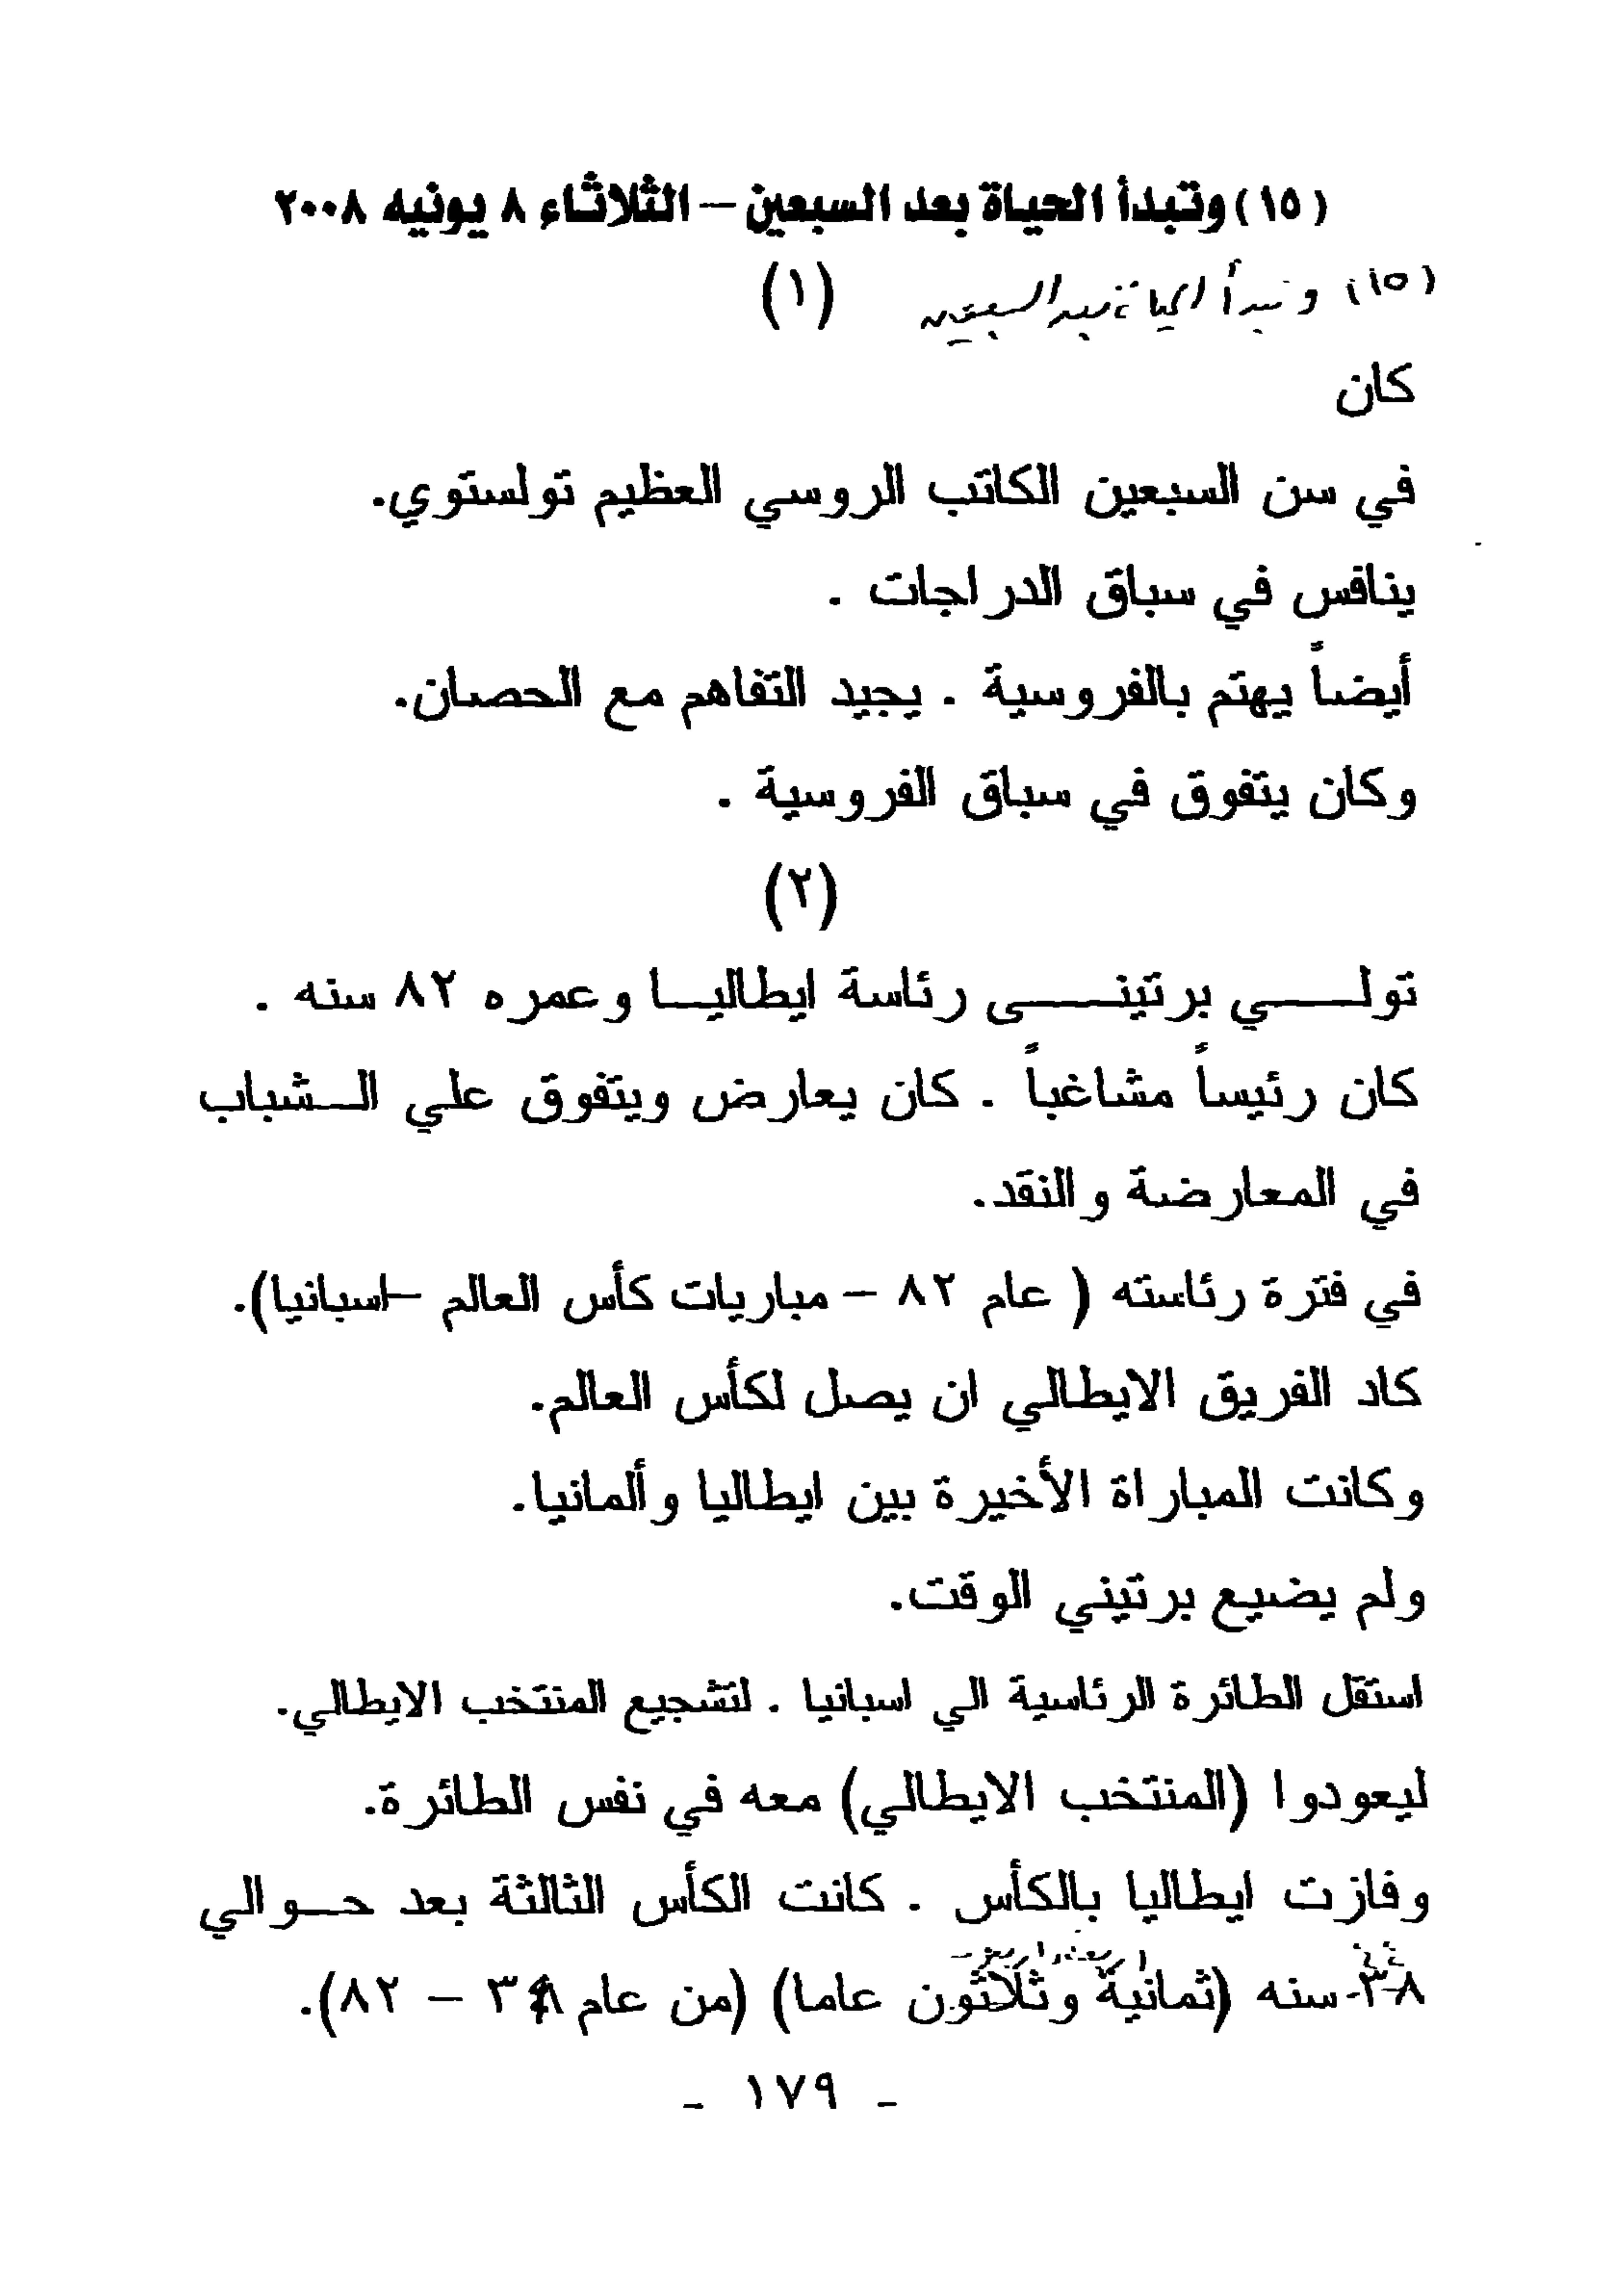 (١٥) وتبدأ الحياة بعد السبعين – الثلاثاء ٨ يونيه ٢٠٠٨
(١٥) وتبدأ الحياة بعد السبعين
(١)
كان
في سن السبعين الكاتب الروسي العظيم تولستوي.
ينافس في سباق الدراجات .
أيضاً يهتم بالفروسية . يجيد التفاهم مع الحصان.
وكان يتفوق في سباق الفروسية .
(٢)
تولي برتينى رئاسة ايطاليا وعمره ٨٢ سنه .
كان رئيساً مشاغباً . كان يعارض ويتفوق علي الشباب
في المعارضة والنقد.
في فترة رئاسته ( عام ٨٢ – مباريات كأس العالم –اسبانيا).
كاد الفريق الايطالي ان يصل لكأس العالم.
وكانت المباراة الأخيرة بين ايطاليا وألمانيا.
ولم يضيع برتيني الوقت.
استقل الطائرة الرئاسية الي اسبانيا . لتشجيع المنتخب الايطالي.
ليعودوا (المنتخب الايطالي) معه في نفس الطائرة.
وفازت ايطاليا بالكأس . كانت الكأس الثالثة بعد حوالي
٤٤ اربعة واربعون
٣٨ سنه (ثمانية وثلاثون عاما) (من عام ٣٨ – ٨٢).
- ١٧٩ -